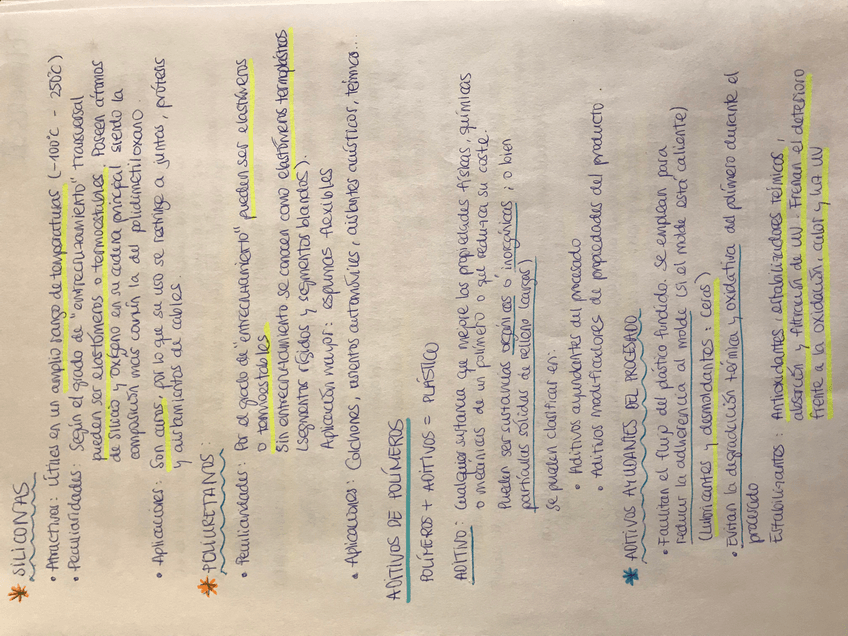 SILICONAS
• Atractivos: Útiles en un amplio rango de temperaturas (-100ºC - 250ºC)
• Peculiaridades: Según el grado de "entrecruzamiento" transversal
pueden ser elastómeros o termoestables. Poseen átomos
de silicio y oxígeno en su cadena principal, siendo la
composición más común la del polidimetilsiloxano.
• Aplicaciones: Son caros, por lo que su uso se restringe a juntas, prótesis
y aislamientos de cables.
POLIURETANOS:
• Peculiaridades: Por el grado de "entrecruzamiento" pueden ser elastómeros
o termoestables
Sin entrecruzamiento se conocen como elastómeros termoplásticos
(segmentos rígidos y segmentos blandos).
Aplicación mayor: espumas flexibles
• Aplicaciones: Colchones, asientos automóviles, aislantes acústicos, térmicos...
ADITIVOS DE POLÍMEROS
POLÍMEROS + ADITIVOS = PLÁSTICO
ADITIVO: Cualquier sustancia que mejore las propiedades físicas, químicas
o mecánicas de un polímero o que reduzca su coste.
Pueden ser sustancias orgánicas o inorgánicas; o bien
partículas sólidas de relleno (cargas)
Se pueden clasificar en:
• Aditivos ayudantes del procesado
• Aditivos modificadores de propiedades del producto.
ADITIVOS AYUDANTES DEL PROCESADO
• Facilitan el flujo del plástico fundido. Se emplean para
reducir la adherencia al molde (si el molde está caliente)
(lubricantes y desmoldantes: ceras)
• Evitan la degradación térmica y oxidativa del polímero durante el
procesado
Estabilizantes: Antioxidantes, estabilizadores térmicos,
absorción y filtración de UV. Frenan el deterioro
frente a la oxidación, calor y luz UV